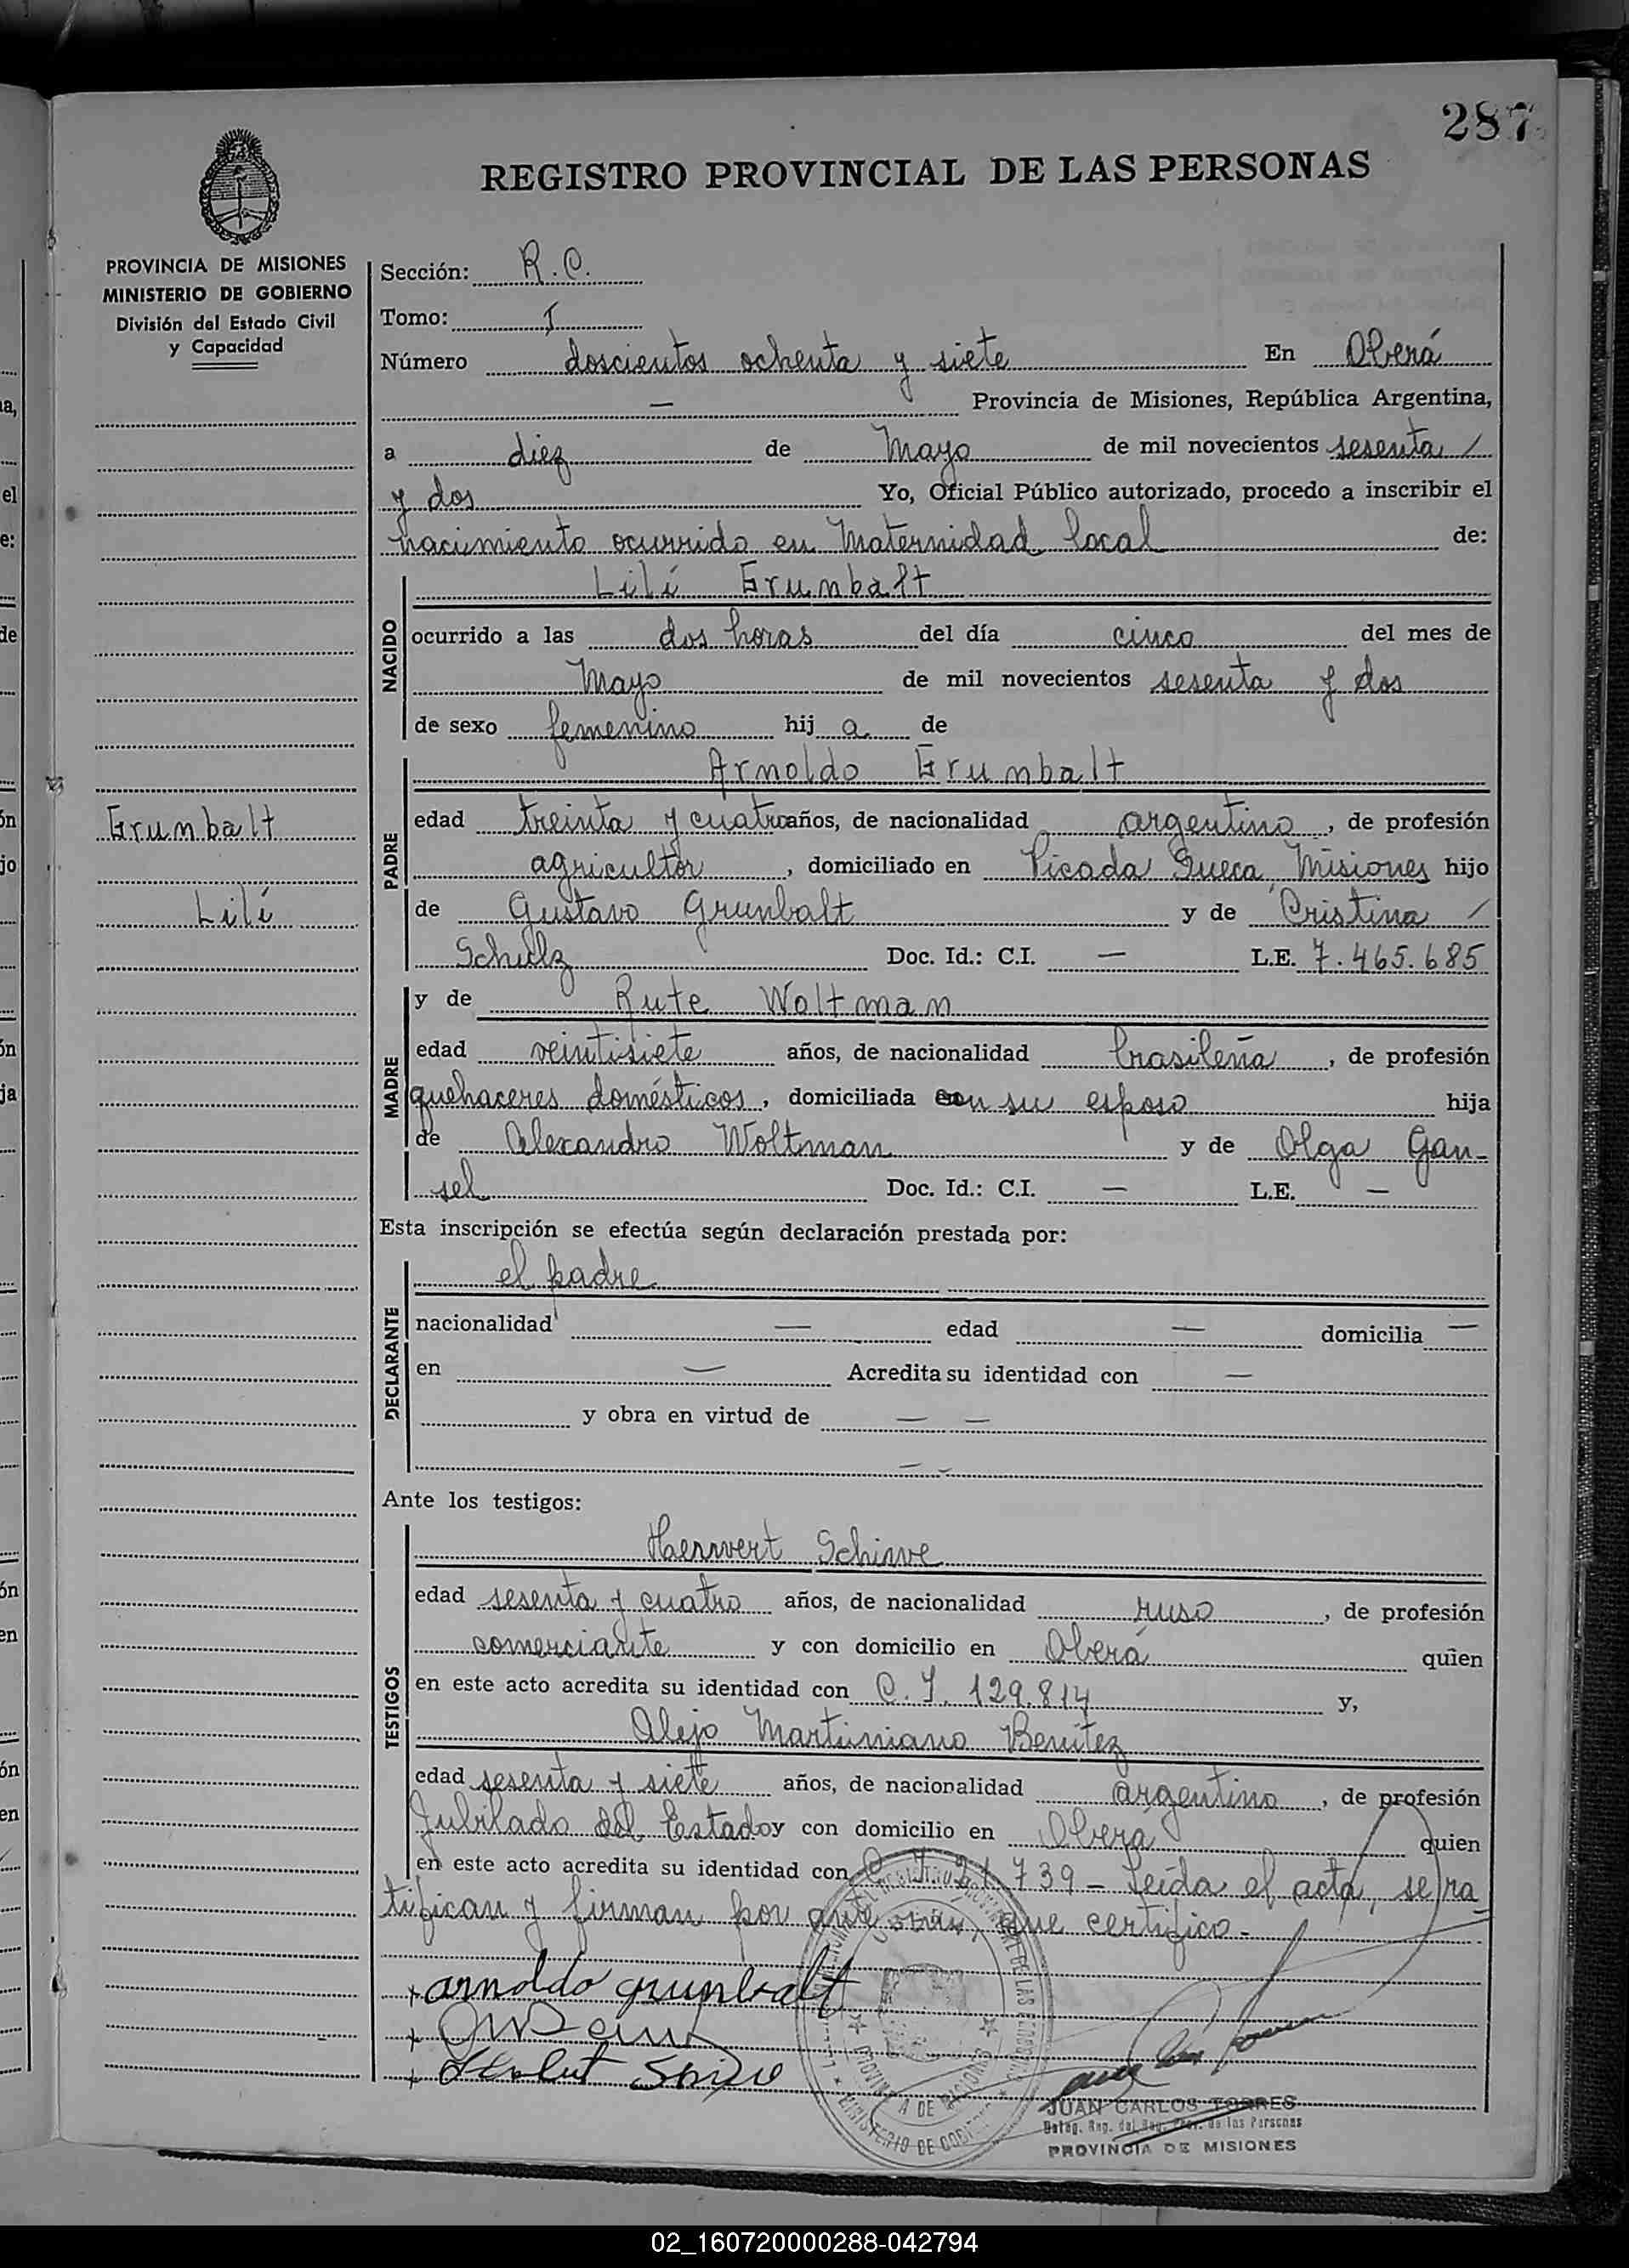 287
REGISTRO PROVINCIAL DE LAS PERSONAS
PROVINCIA DE MISIONES
MINISTERIO DE GOBIERNO
División del Estado Civil
y Capacidad
Grumbalt
Lilí
Sección: R.C.
Tomo: I
Número doscientos ochenta y siete En Oberá
— Provincia de Misiones, República Argentina,
a diez de Mayo de mil novecientos sesenta /
y dos Yo, Oficial Público autorizado, procedo a inscribir el
nacimiento ocurrido en Maternidad local de:
NACIDO
Lilí Grumbalt
ocurrido a las dos horas del día cinco del mes de
Mayo de mil novecientos sesenta y dos
de sexo femenino hij a de
PADRE
Arnoldo Grumbalt
edad treinta y cuatro años, de nacionalidad argentino, de profesión
agricultor, domiciliado en Picada Sueca, Misiones hijo
de Gustavo Grunbalt y de Cristina /
Schulz Doc. Id.: C.I. — L.E. 7.465.685
MADRE
y de Rute Woltman
edad veintisiete años, de nacionalidad brasileña, de profesión
quehaceres domésticos, domiciliada con su esposo hija
de Alexandro Woltman y de Olga Gan-
sel Doc. Id.: C.I. — L.E. —
Esta inscripción se efectúa según declaración prestada por:
DECLARANTE
el padre
nacionalidad — edad — domicilia —
en — Acredita su identidad con —
y obra en virtud de — —
— -
Ante los testigos:
TESTIGOS
Herwert Schirve
edad sesenta y cuatro años, de nacionalidad ruso, de profesión
comerciante y con domicilio en Oberá quien
en este acto acredita su identidad con C.I. 129.814 y,
Alejo Martiniano Benítez
edad sesenta y siete años, de nacionalidad argentino, de profesión
Jubilado del Estado y con domicilio en Oberá quien
en este acto acredita su identidad con 739 - Leída el acta, se ra
tifican y firman por ante que certifico -
+ arnoldo grunbalt
JUAN CARLOS TORRES
PROVINCIA DE MISIONES
02_160720000288-042794